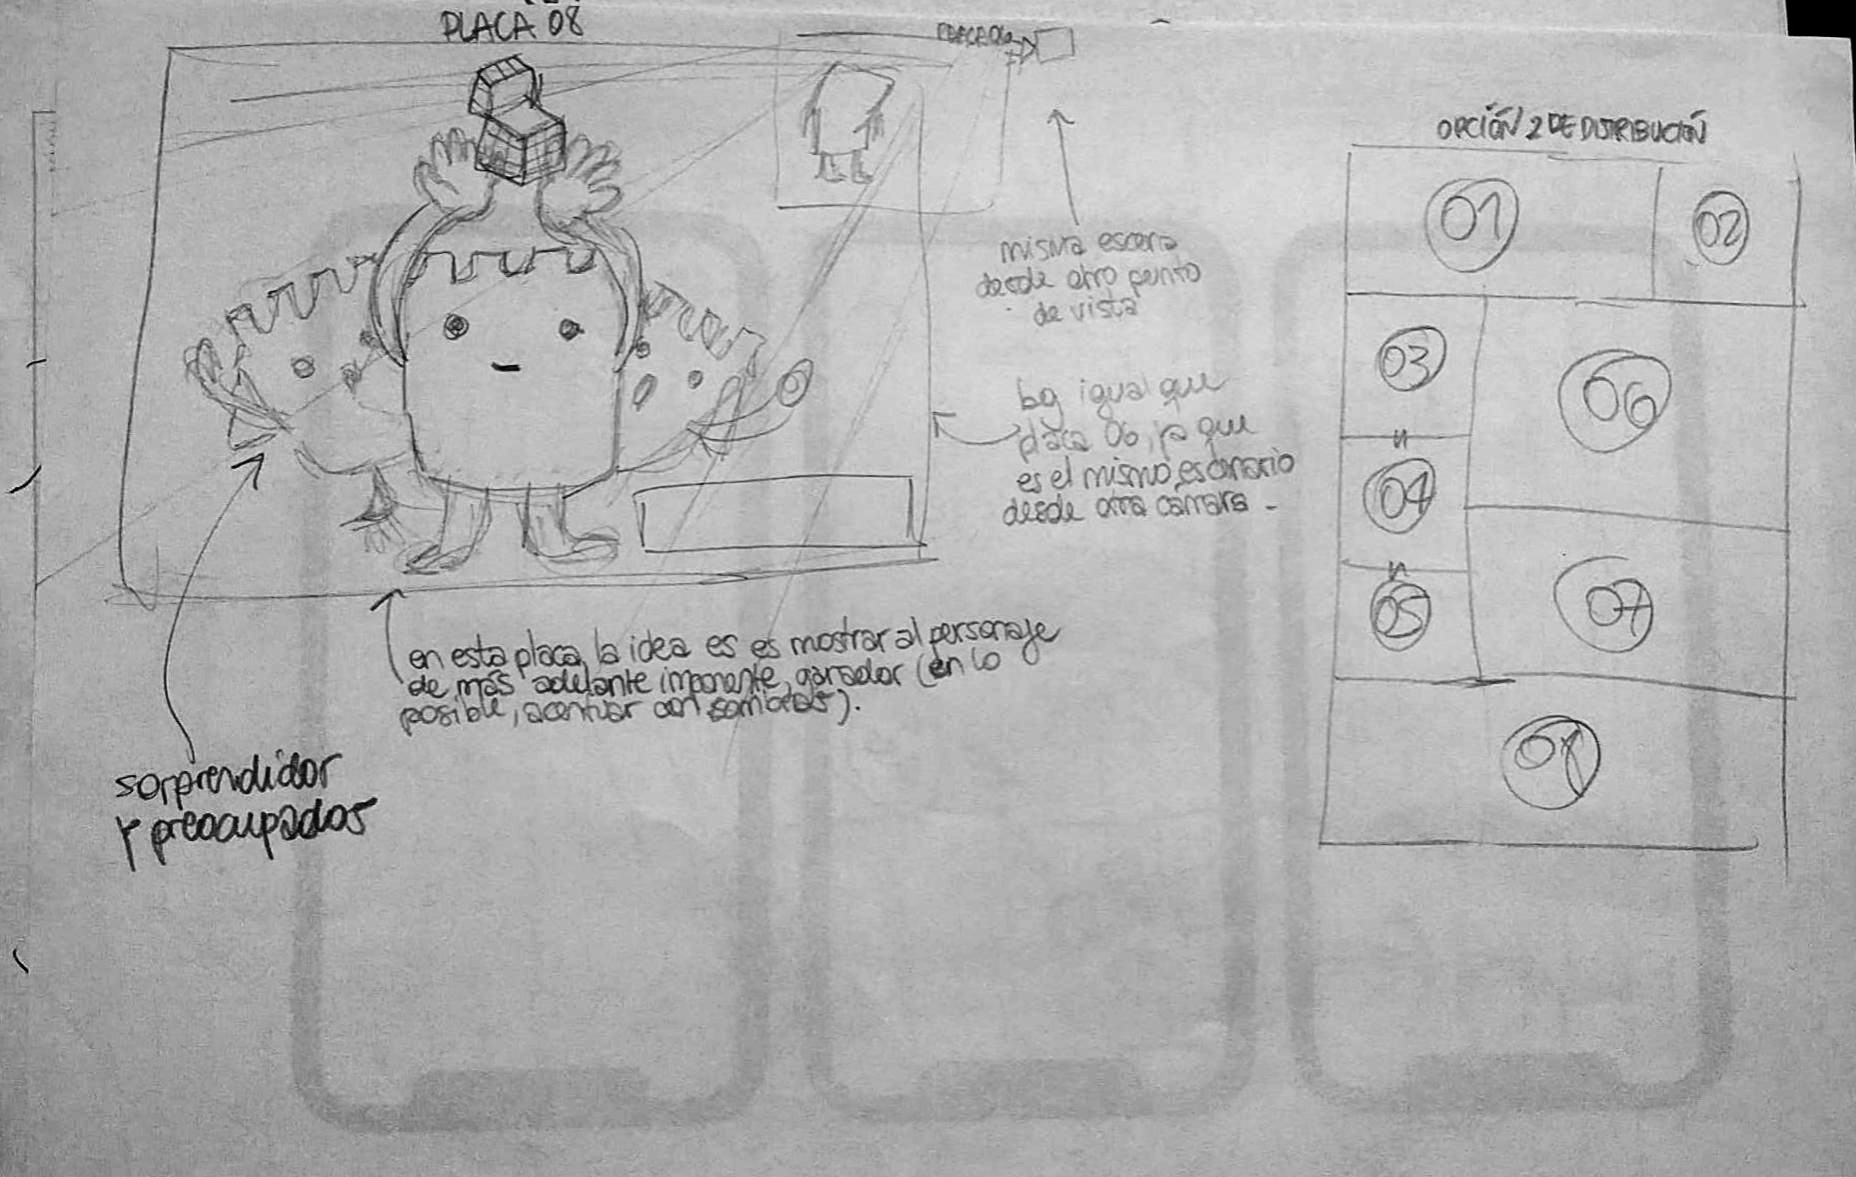 PLACA 08
PLACA 06
misma escena
desde otro punto
de vista
bg igual que
placa 06, ya que
es el mismo escenario
desde otra cámara -
en esta placa, la idea es es mostrar al personaje
de más adelante imponente, ganador (en lo
posible, acentuar con sombras).
sorprendidos
y preocupados
OPCIÓN 2 DE DISTRIBUCIÓN
01
02
03
06
04
05
07
08